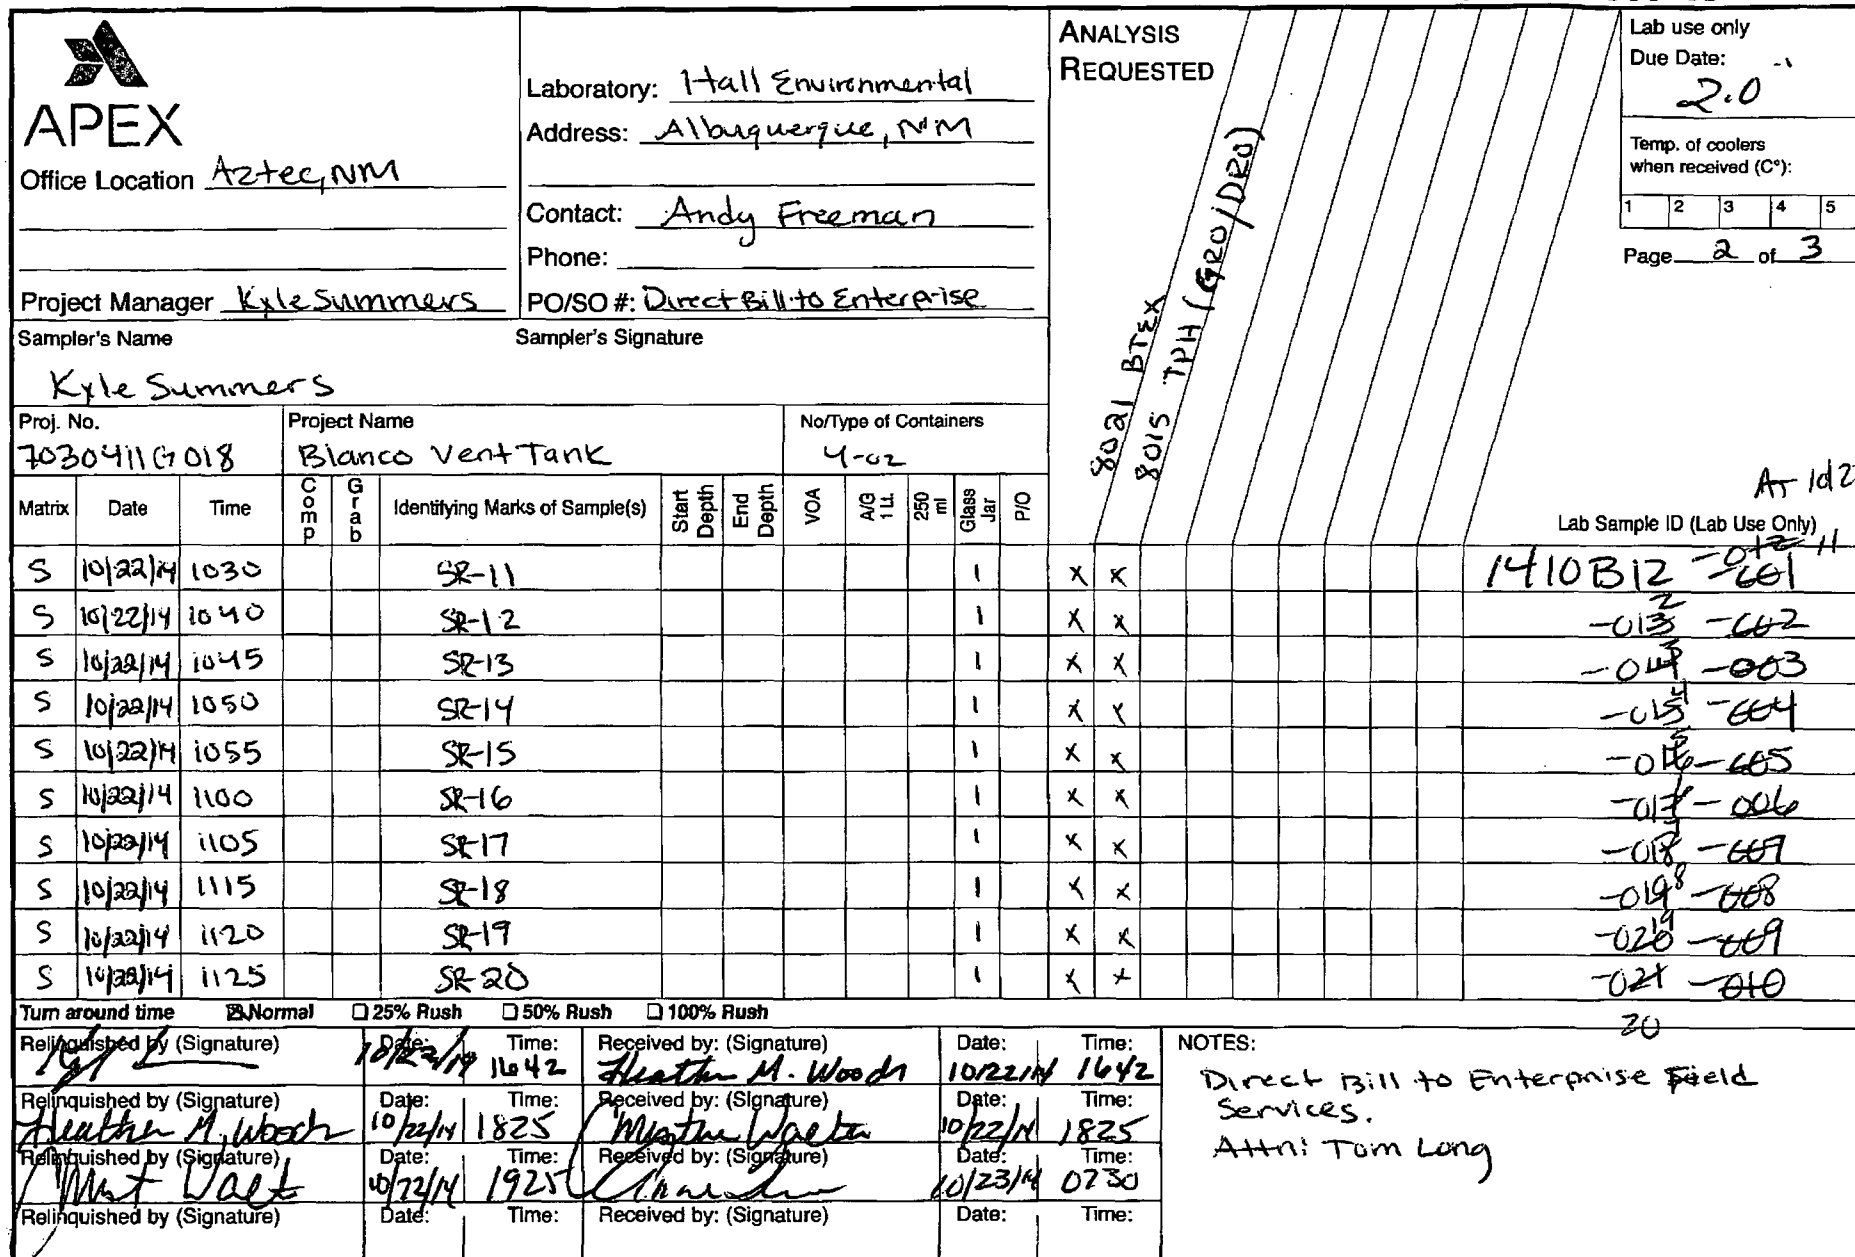 APEX
Office Location Aztec, NM
Project Manager Kyle Summers
Laboratory: Hall Environmental
Address: Albuquerque, NM
Contact: Andy Freeman
Phone:
PO/SO #: Direct Bill to Enterprise
ANALYSIS
REQUESTED
8021 BTEX
8015 TPH (GRO/DRO)
Lab use only
Due Date:
2.0
Temp. of coolers
when received (C°):
1 2 3 4 5
Page 2 of 3
Sampler's Name
Kyle Summers
Sampler's Signature
Proj. No.
7030411G018
Project Name
Blanco Vent Tank
No/Type of Containers
4-oz
Matrix Date Time Comp Grab Identifying Marks of Sample(s) Start Depth End Depth VOA A/G 1 Lt. 250 ml Glass Jar P/O Lab Sample ID (Lab Use Only)
S 10/22/14 1030 SR-11 1 X X 1410B12 -012 11 -001
S 10/22/14 1040 SR-12 1 X X -013 2 -002
S 10/22/14 1045 SR-13 1 X X -014 3 -003
S 10/22/14 1050 SR-14 1 X X -015 4 -004
S 10/22/14 1055 SR-15 1 X X -016 5 -005
S 10/22/14 1100 SR-16 1 X X -017 6 -006
S 10/22/14 1105 SR-17 1 X X -018 7 -007
S 10/22/14 1115 SR-18 1 X X -019 8 -008
S 10/22/14 1120 SR-19 1 X X -020 19 -009
S 10/22/14 1125 SR-20 1 X X -021 -010
20
Turn around time ☒ Normal ☐ 25% Rush ☐ 50% Rush ☐ 100% Rush
Relinquished by (Signature) Date: 10/22/14 Time: 1642 Received by: (Signature) Heather M. Woods Date: 10/22/14 Time: 1642
Relinquished by (Signature) Heather M. Woods Date: 10/22/14 Time: 1825 Received by: (Signature) Date: 10/22/14 Time: 1825
Relinquished by (Signature) Date: 10/22/14 Time: 1925 Received by: (Signature) Date: 10/23/14 Time: 0730
Relinquished by (Signature) Date: Time: Received by: (Signature) Date: Time:
NOTES:
Direct Bill to Enterprise Field
Services.
Attn: Tom Long